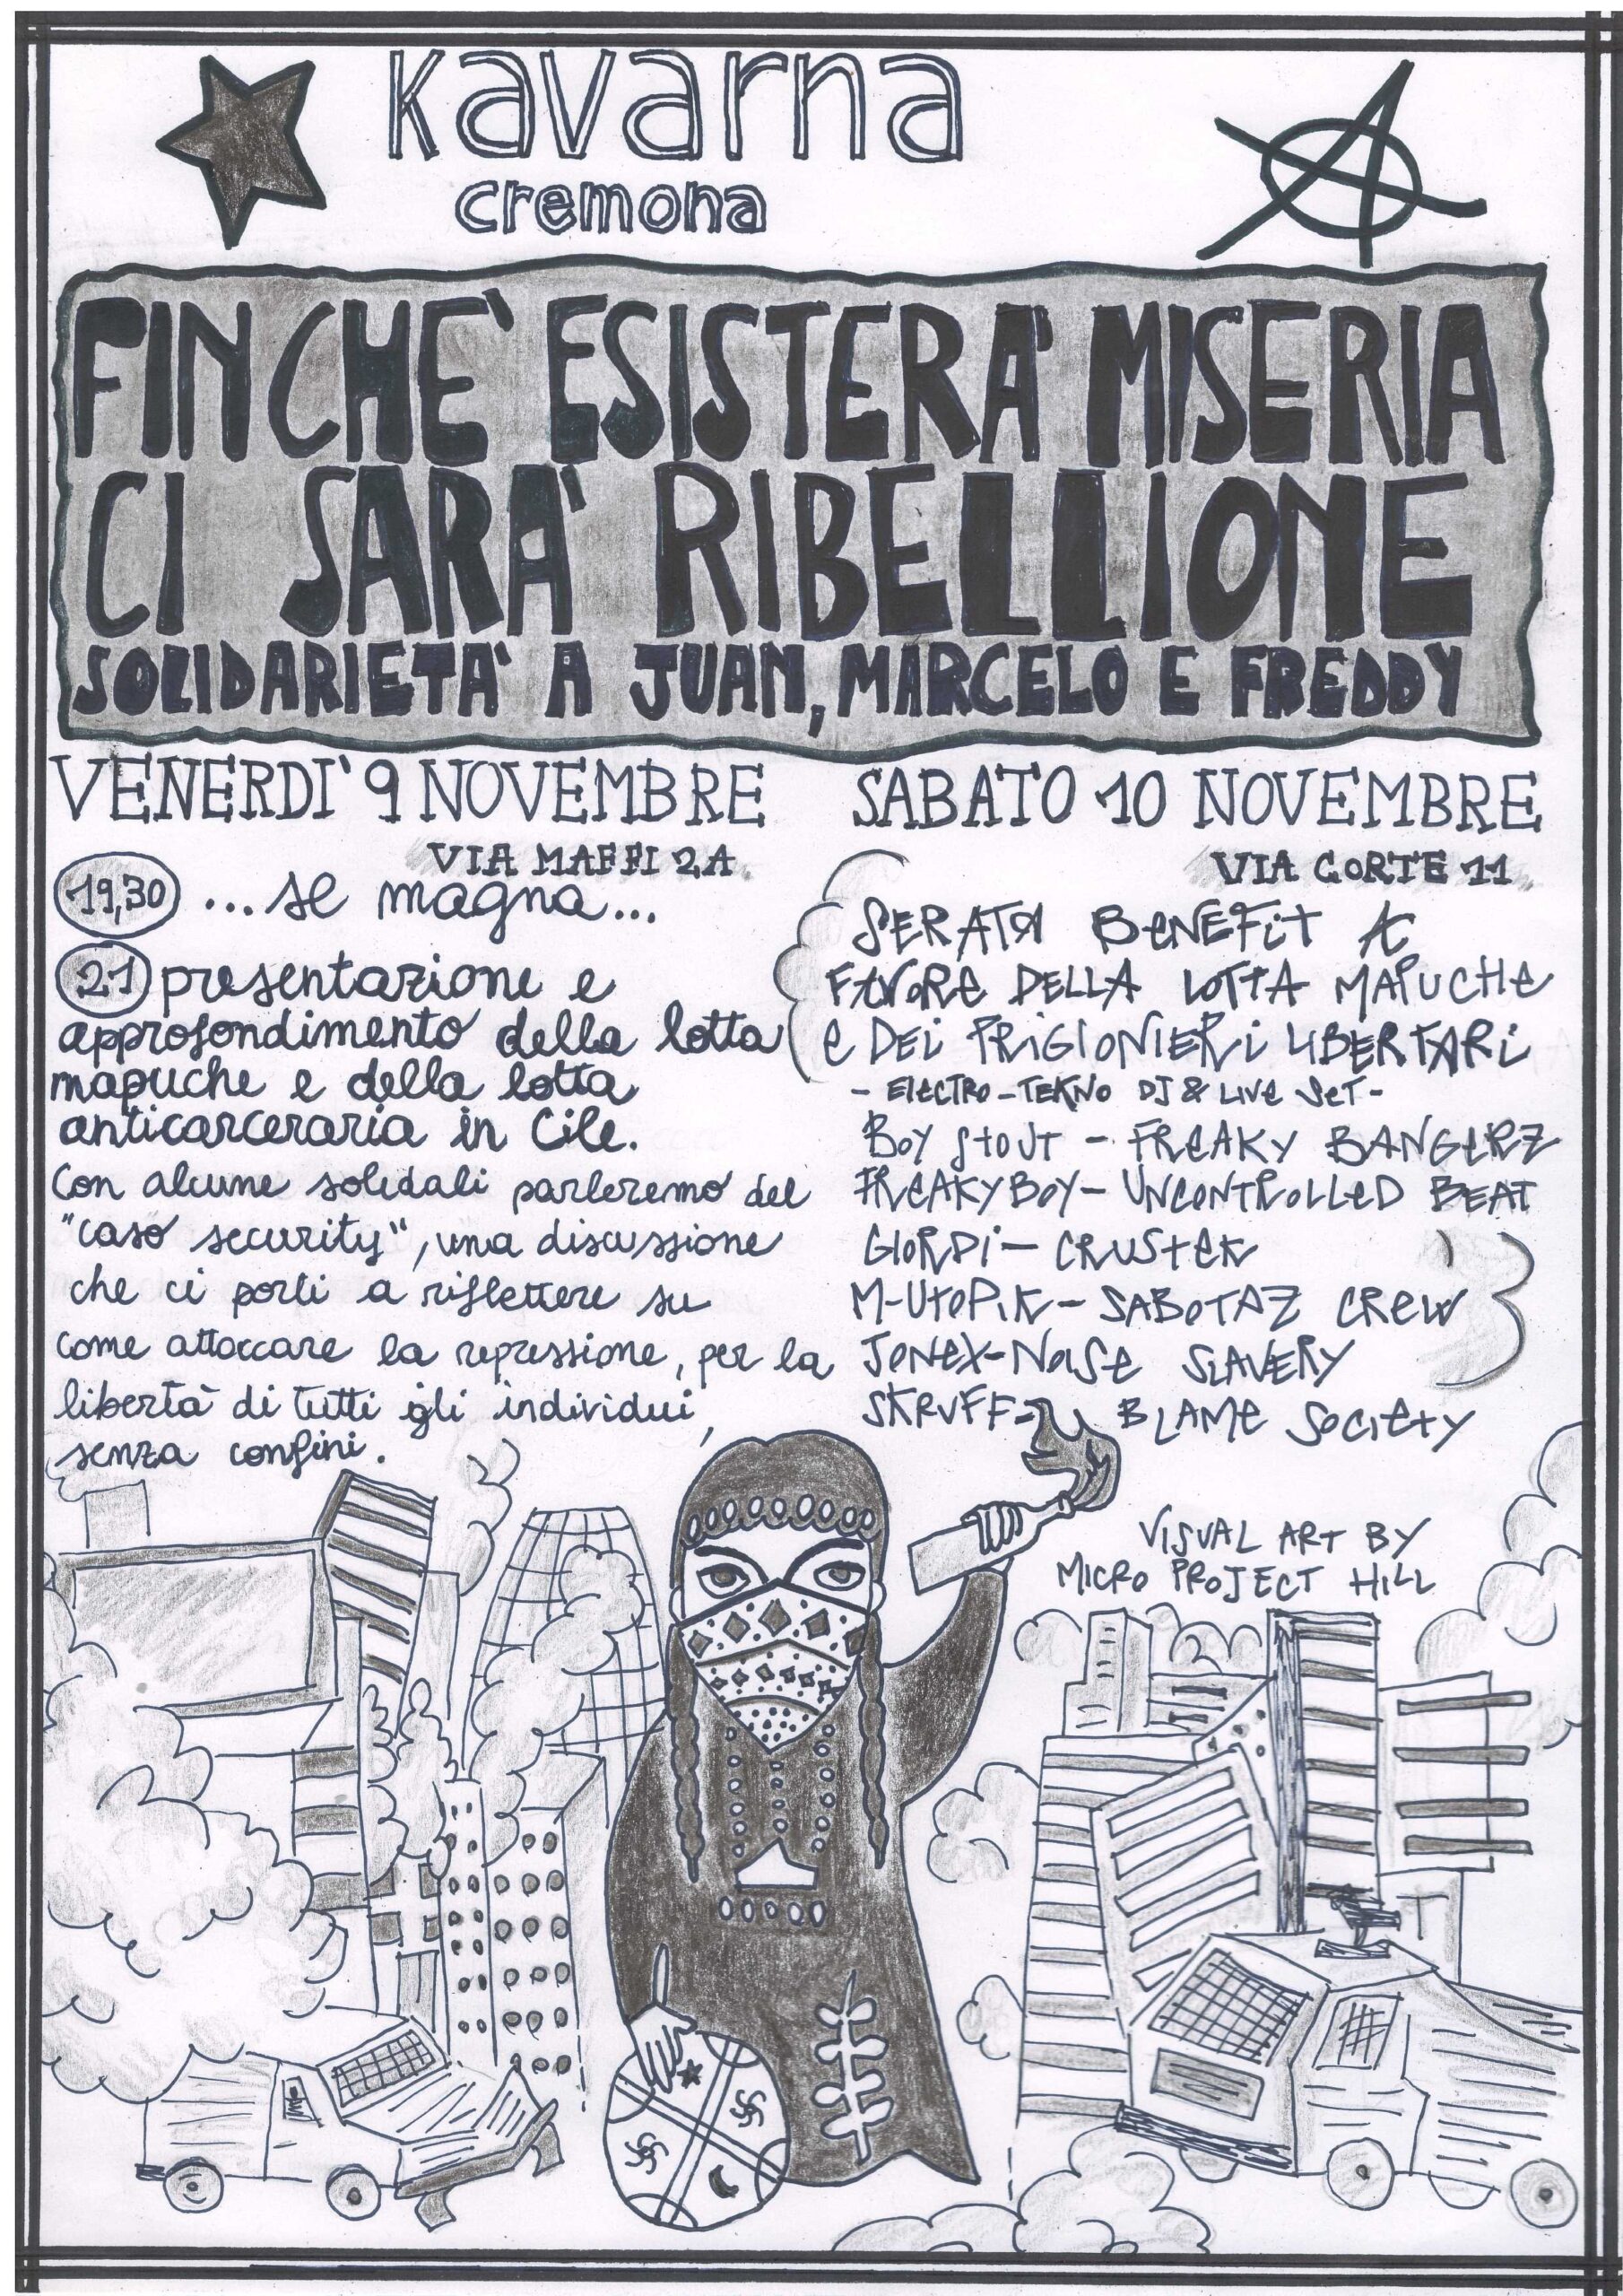 kavarna
cremona
FINCHE' ESISTERA' MISERIA
CI SARA' RIBELLIONE
SOLIDARIETA' A JUAN, MARCELO E FREDDY
VENERDI' 9 NOVEMBRE
VIA MAFFI 2A
19,30 ...se magna...
21 presentazione e
approfondimento della lotta
mapuche e della lotta
anticarceraria in Cile.
Con alcune solidali parleremo del
"caso security", una discussione
che ci porti a riflettere su
come attaccare la repressione, per la
libertà di tutti gli individui,
senza confini.
SABATO 10 NOVEMBRE
VIA CORTE 11
SERATA BENEFIT A
FAVORE DELLA LOTTA MAPUCHE
e DEI PRIGIONIERI LIBERTARI
- ELECTRO-TEKNO DJ & LIVE SET-
BOY STOUT - FREAKY BANGERZ
FREAKYBOY- UNCONTROLLED BEAT
GIORDI- CRUSTEK
M-UTOPIK- SABOTAZ CREW
JONEX-NOISE SLAVERY
SKRUFF- BLAME SOCIETY
VISUAL ART BY
MICRO PROJECT HILL